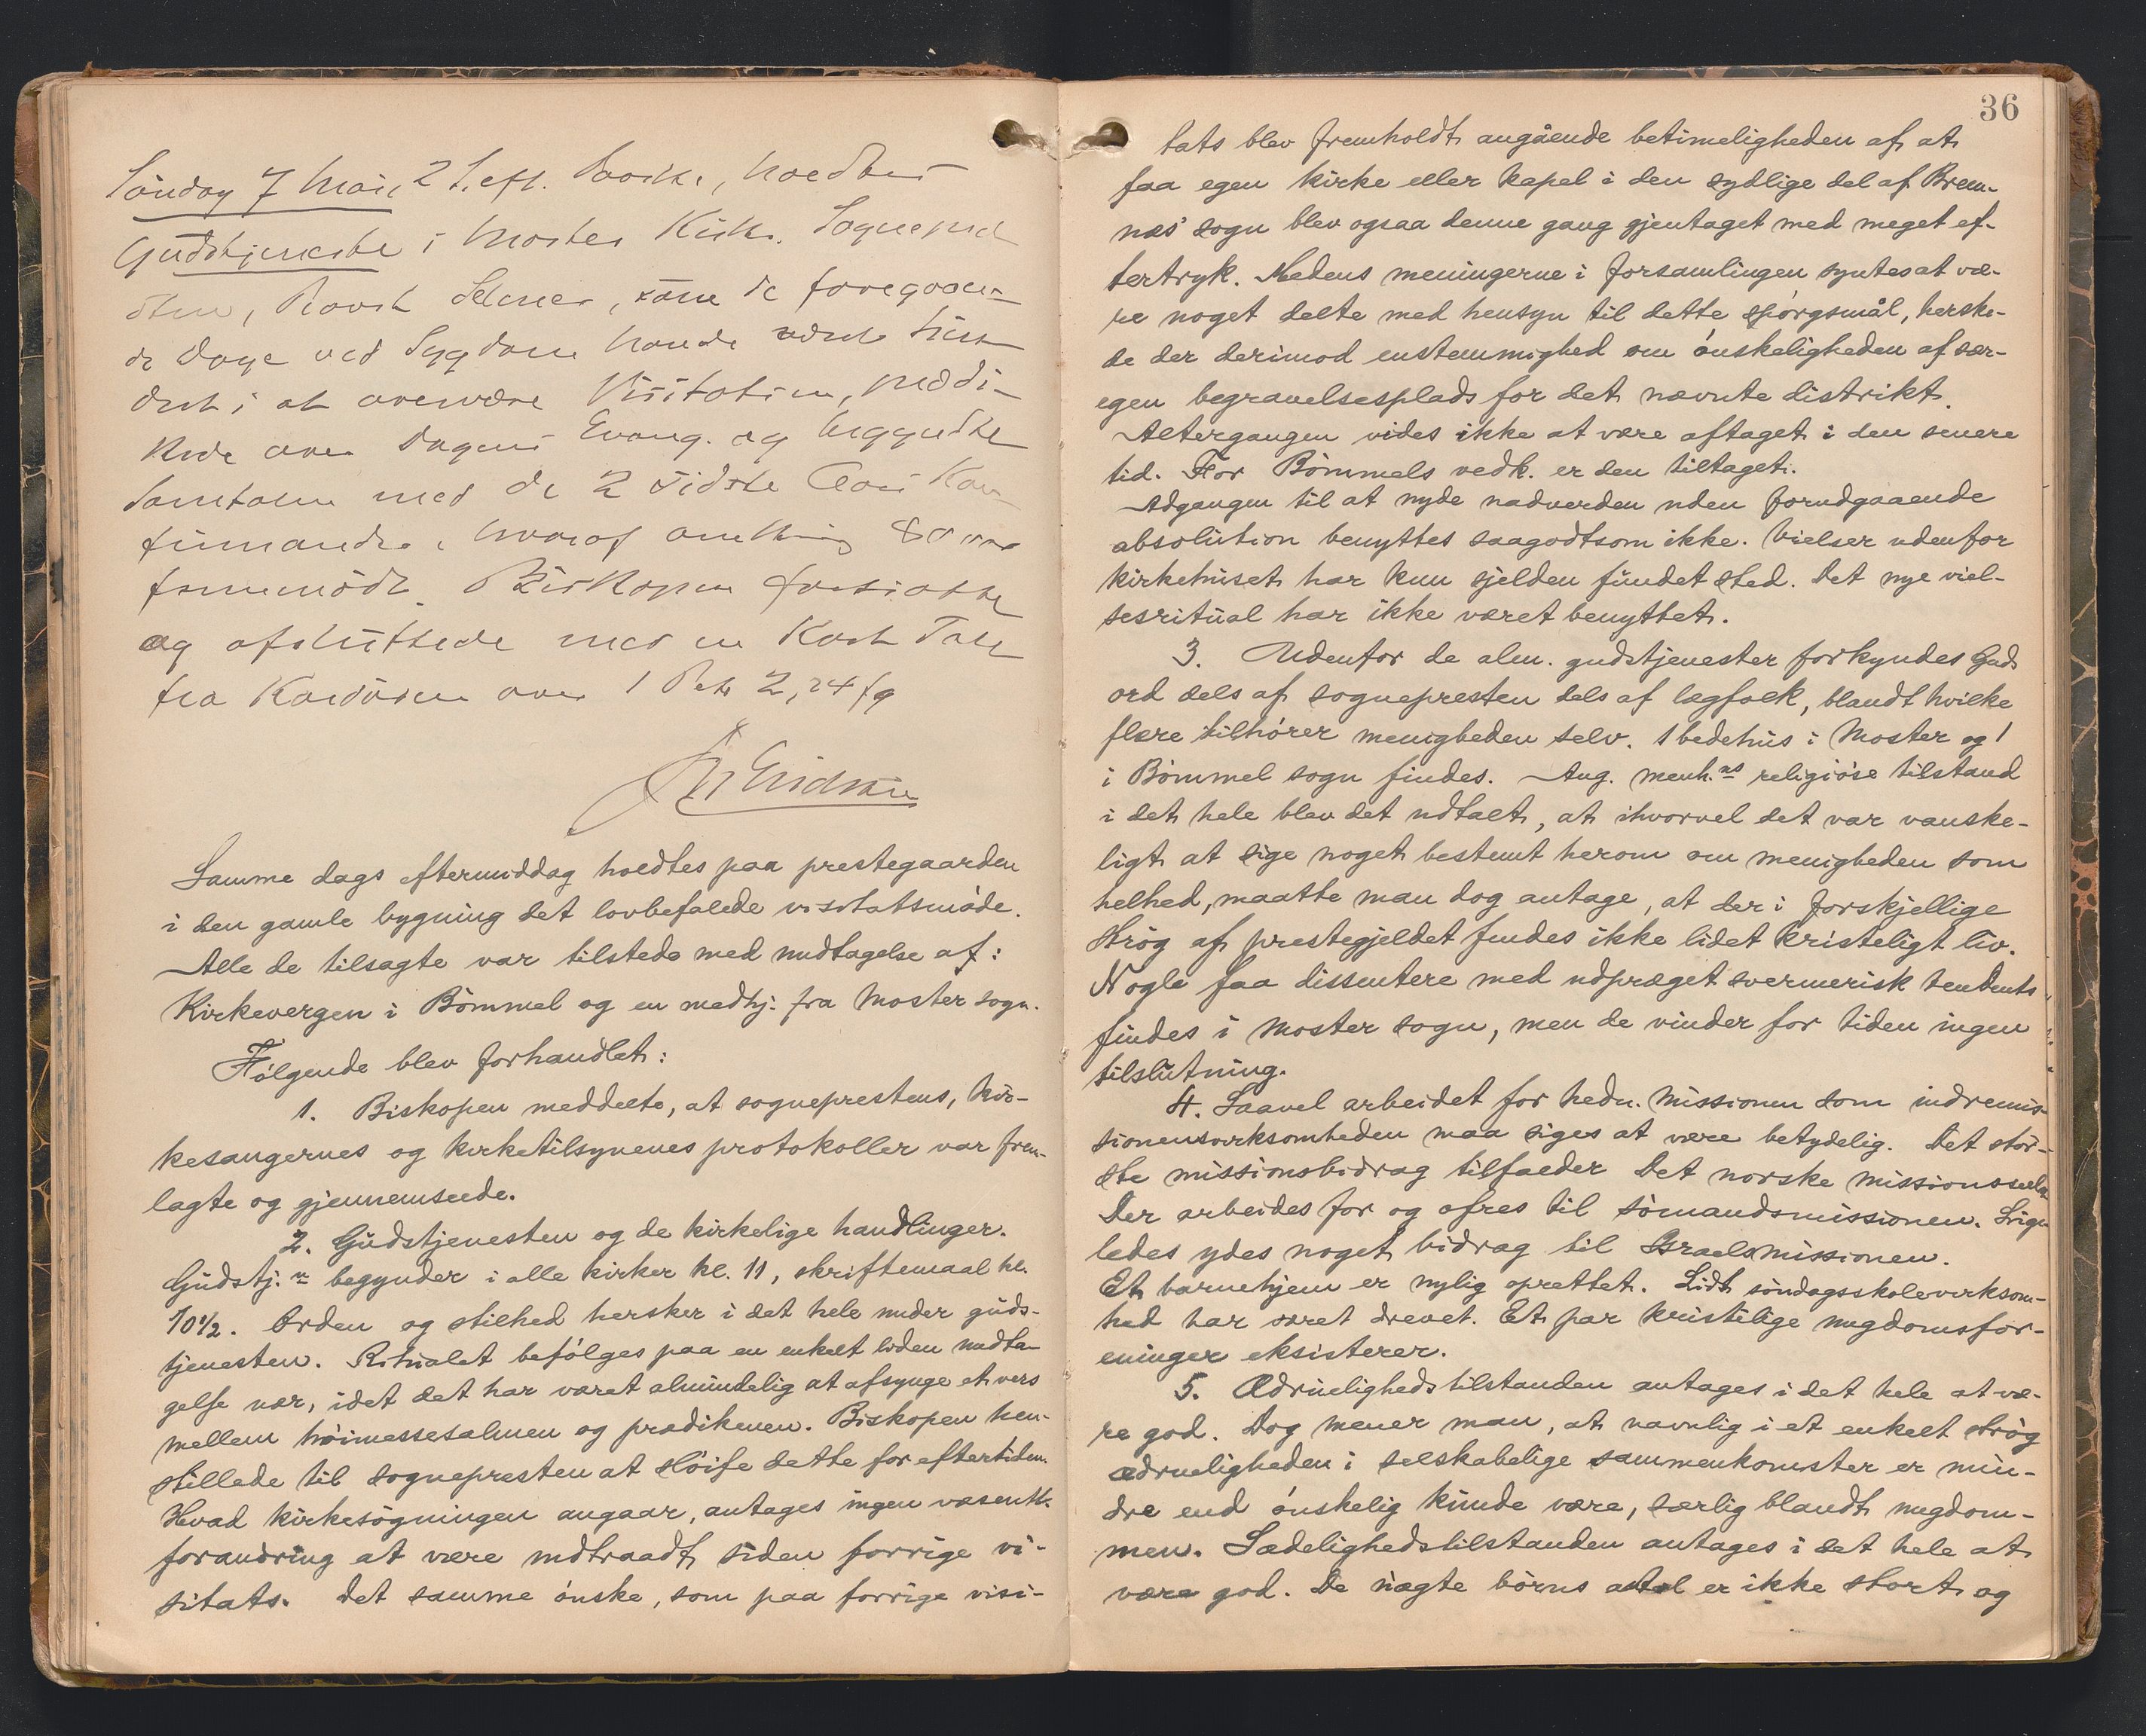 Söndag 7 Mai, 2 S. eft. Paaske, holdtes
Gudstjeneste i Moster Kirke. Sognepræ
sten, Provst , som de foregaaen
de Dage ved Sygdom havde været hind
dret i at overvære Visitatsen, prædi-
kede over Dagens Evang. og begyndte
Samtalen med de 2 sidste Aars Kon
firmander, hvoraf omkring 80 var
fremmödt. Biskopen fortsatte
og afsluttede med en kort Tale
fra Kordören over 1 Pet 2, 24 fg

Samme dags eftermiddag holdtes paa prestegaarden
i den gamle bygning det lovbefalede visitatsmöde.
Alle de tilsagte var tilstede med undtagelse af:
Kirkevergen i Bömmel og en medhj. fra Moster sogn.
Fölgende blev forhandlet:
1. Biskopen meddelte, at sogneprestens, kir-
kesangernes og kirketilsynenes protokoller var frem-
lagte og gjennemseede.
2. Gudstjenesten og de kirkelige handlinger.
Gudstj.n begynder i alle kirker kl. 11, skriftemaal kl.
10½. Orden og stilhed hersker i det hele under guds-
tjenesten. Ritualet befölges paa en enkelt liden undta-
gelse nær, idet det har været almindelig at afsynge et vers
mellem höimessesalmen og prædikenen. Biskopen hen-
stillede til sognepresten at slöife dette for eftertiden.
Hvad kirkesögningen angaar, antages ingen væsentl.
forandring at være indtraadt siden forrige vi-
sitats. Det samme önske, som paa forrige visi-
36
tats blev fremholdt angående betimeligheden af at
faa egen kirke eller kapel i den sydlige del af Brem-
næs sogn blev ogsaa denne gang gjentaget med meget ef-
tertryk. Medens meningerne i forsamlingen syntes at væ-
re noget delte med hensyn til dette spörgsmål, herske-
de der derimod enstemmighed om önskeligheden af sær-
egen begravelsesplads for det nævnte distrikt.
Altergangen vides ikke at være aftaget i den senere
tid. For Bömmels vedk. er den tiltaget.
Adgangen til at nyde nadverden uden forudgaaende
absolution benyttes saagodtsom ikke. Vielser udenfor
kirkehuset har kun sjelden fundet sted. Det nye viel-
sesritual har ikke været benyttet.
3. Udenfor de alm. gudstjenester forkyndes Guds
ord dels af sognepresten dels af lægfolk, blandt hvilke
flere tilhörer menigheden selv. 1 bedehus i Moster og 1
i Bömmel sogn findes. Ang. menh.ns religiöse tilstand
i det hele blev det udtalt, at ihvorvel det var vanske-
ligt at sige noget bestemt herom om menigheden som
helhed, maatte man dog antage, at der i forskjellige
strög af prestegjeldet findes ikke lidet kristeligt liv.
Nogle faa dissentere med udpræget svermerisk tendents
findes i Moster sogn, men de vinder for tiden ingen
tilslutning.
4. Saavel arbeidet for hedn. missionen som indremis-
sionensvirksomheden maa siges at være betydelig. Det stör-
ste missionsbidrag tilfalder Det norske missionsselsk.
Der arbeides for og ofres til sömandsmissionen. Lige
ledes ydes noget bidrag til Israelsmissionen.
Et barnehjem er nylig oprettet. Lidt söndagsskolevirksom-
hed har været drevet. Et par kristelige ungdomsfor-
eninger eksisterer.
5. Ædruelighedstilstanden antages i det hele at væ-
re god. Dog mener man, at navnlig i et enkelt strög
ædrueligheden i selskabelige sammenkomster er min-
dre end önskelig kunde være, særlig blandt ungdom-
men. Sædelighedstilstanden antages i det hele at
være god. De uægte börns antal er ikke stort og